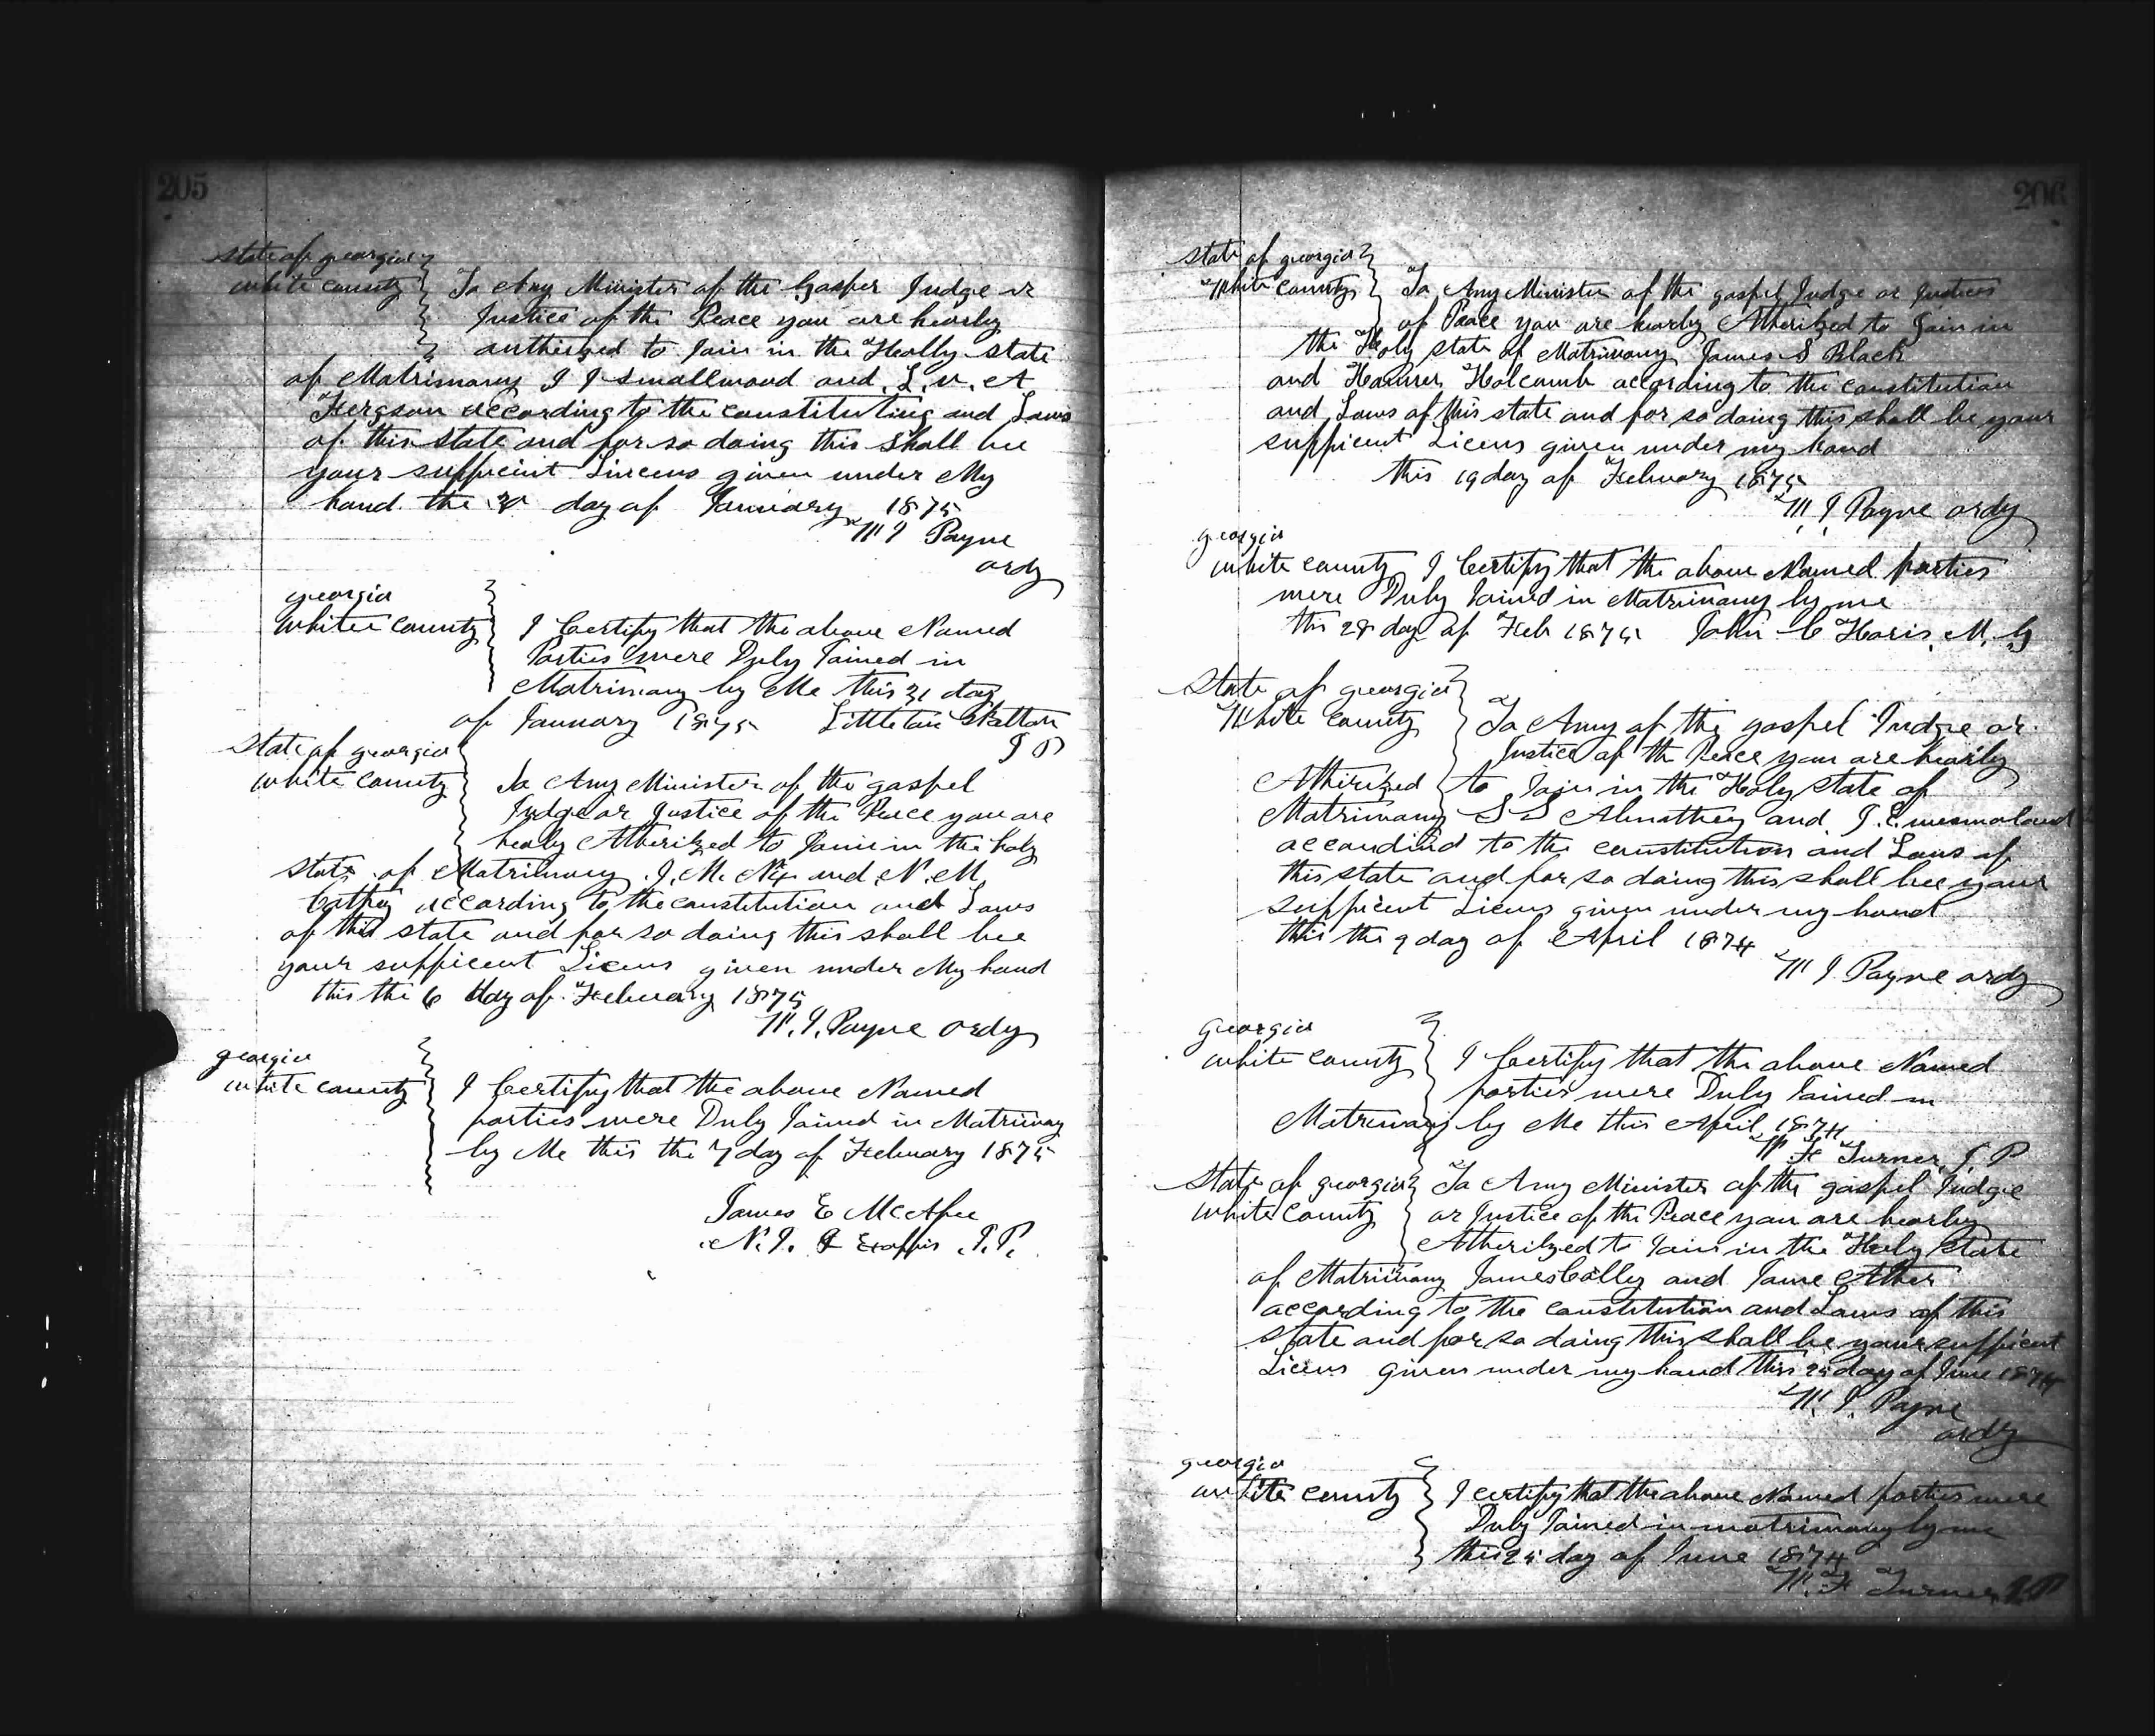 205
state of georgia
white county To Any Minister of the Gosper Judge or
Justice of the Peace you are hearby
autherized to Join in the Holly state
of Matrimony J J Smallwood and L. v. A
Fergson according to the constituting and Laws
of this state and for so doing this shall be
your sufficint Lincens given under My
hand the day of January 1875
W J Payne
ordy
georgia
White county I Certify that the above Named
Parties were Duly Joined in
Matrimony by Me this 31 day
of January 1875 Littleton Skelton
J P
State of georgia
white county To Any Minister of the gospel
Judge or Justice of the Peace you are
hearby Atherized to Join in the holy
state of Matrimony J. M. Nix and N. M
Cathey according to the constitution and Laws
of this state and for so doing this shall be
your sufficent Licens given under My hand
this the 6 day of February 1875
W. J. Payne ordy
georgia
white county I Certify that the above Named
parties were Duly Joined in Matrimony
by Me this the 7 day of February 1875
James E McAfee
N. P. & Exoffis J. P.
206
state of georgia
White County To Any Minister of the gospel Judge or Justices
of Peace you are hearby Atherized to Join in
the Holy state of Matrimony James S Black
and Holcomb according to the constitution
and Laws of this state and for so doing this shall be your
sufficent Licens given under my hand
this 19 day of February 1875
W. J. Payne ordy
georgia
white county I Certify that the above Named parties
were Duly Joined in Matrimony by me
this 28 day of Feb 1875 John C Haris M. G
State of georgia
White county To Any of the gospel Judge or
Justice of the Peace you are hearby
Atherized to Join in the Holy state of
Matrimony S S Abnathey and J. E.
accordind to the constitution and Laws of
this state and for so doing this shall bee your
sufficent Licens given under my hand
this the 9 day of April 1874
W J. Payne ordy
georgia
white county I Certify that the above Named
parties were Duly Joined in
Matrimony by Me this April 1874
W F Turner J. P
State of georgia To Any Minister of the gospel Judge
white County or Justice of the Peace you are hearby
Atherized to Join in the Holy state
of Matrimony James Colley and Jane
according to the constitution and Laws of this
state and for so doing this shall be your sufficent
Licens given under my hand this 25 day of June 1874
W. J. Payne
ordy
georgia
white county I certify that the above Named parties were
Duly Joined in matrimony by me
this 25 day of June 1874
W. F Turner J P